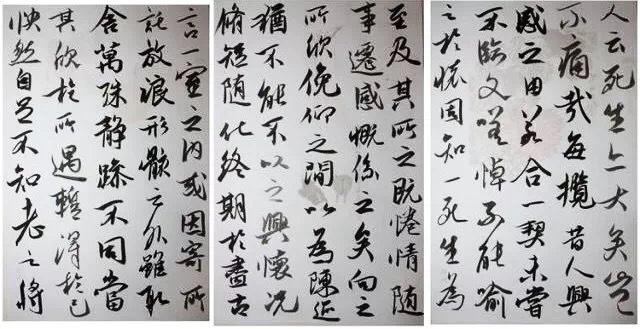 言一室之内或因寄所
託放浪形骸之外雖取
舍萬殊靜躁不同當
其欣於所遇輒得於己
怏然自足不知老之將
至及其所之既惓情隨
事遷感慨係之矣向之
所欣俛仰之間以為陳迹
猶不能不以之興懷況
脩短隨化終期於盡古
人云死生亦大矣豈
不痛哉每攬昔人興
感之由若合一契未嘗
不臨文嗟悼不能喻
之於懷固知一死生為